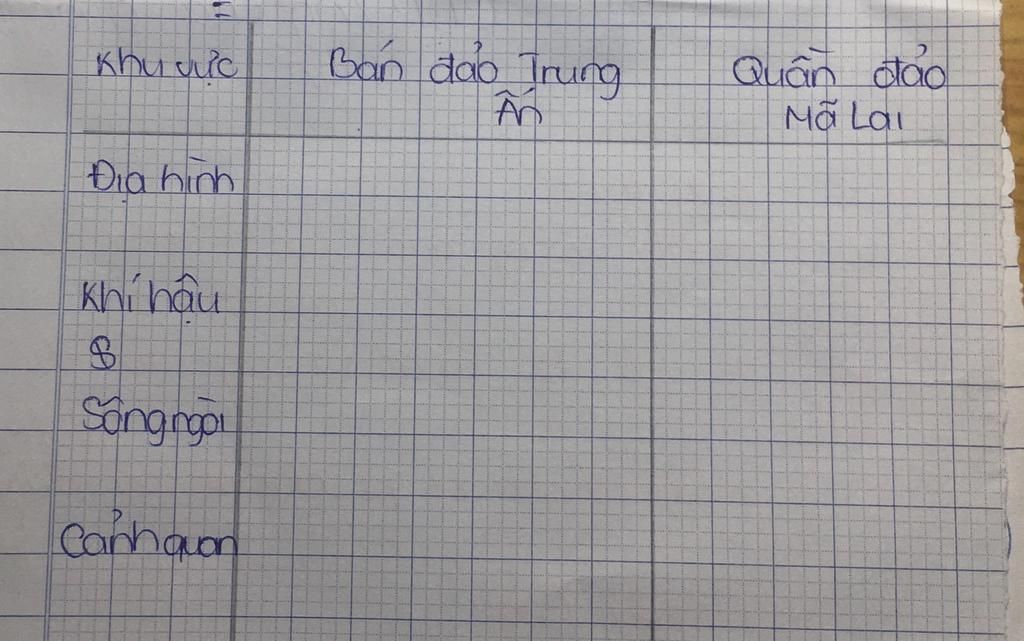 Khu vực
Bán đảo Trung
Ấn
Quần đảo
Mã Lai
Địa hình
Khí hậu
$
Sông ngòi
Cảnh quan